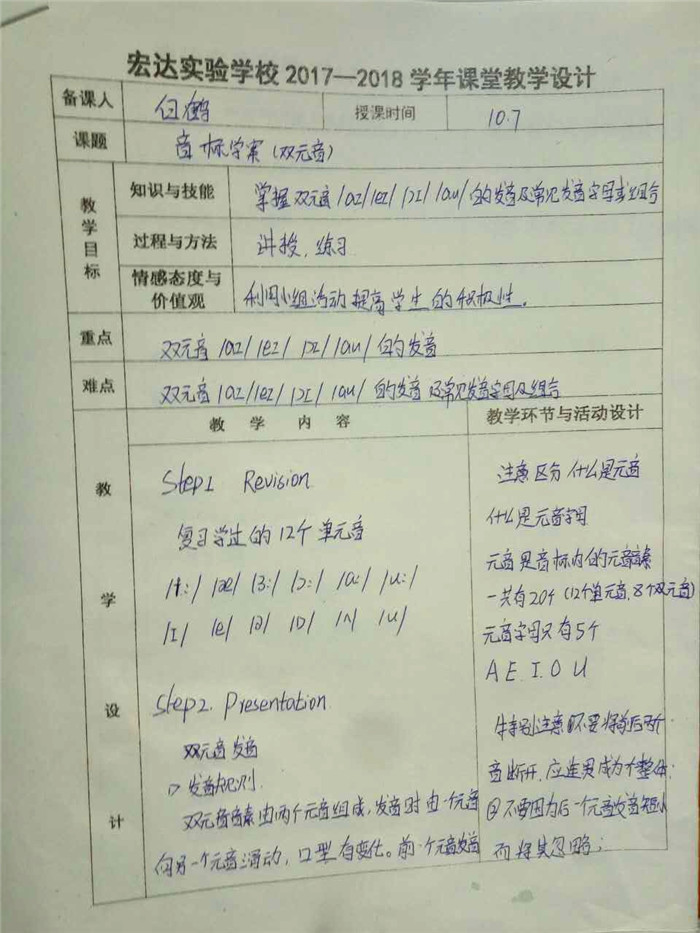 宏达实验学校2017—2018学年课堂教学设计
备课人 白鹤 授课时间 10.7
课题 音标学案(双元音)
教学目标
知识与技能 掌握双元音/aɪ/ /eɪ/ /ɔɪ/ /au/的发音及常见发音字母或组合
过程与方法 讲授、练习
情感态度与价值观 利用小组活动提高学生的积极性.
重点 双元音/aɪ/ /eɪ/ /ɔɪ/ /au/的发音
难点 双元音/aɪ/ /eɪ/ /ɔɪ/ /au/的发音及常见发音字母及组合
教学设计
教 学 内 容
Step1 Revision
复习学过的12个单元音
/i:/ /æ/ /ɜ:/ /ɔ:/ /a:/ /u:/
/ɪ/ /e/ /ə/ /ɒ/ /ʌ/ /u/
Step2. Presentation.
双元音发音
1>发音规则.
双元音音素由两个元音组成,发音时由一个元音
向另一个元音滑动,口型有变化。前一个元音发音
教学环节与活动设计
注意区分什么是元音
什么是元音字母
元音是音标内的元音音素
一共有20个(12个单元音、8个双元音)
元音字母只有5个
A E I O U
特别注意①不要将前后两个
音断开,应连贯成为个整体;
②不要因为后一个元音发音短小
而将其忽略;